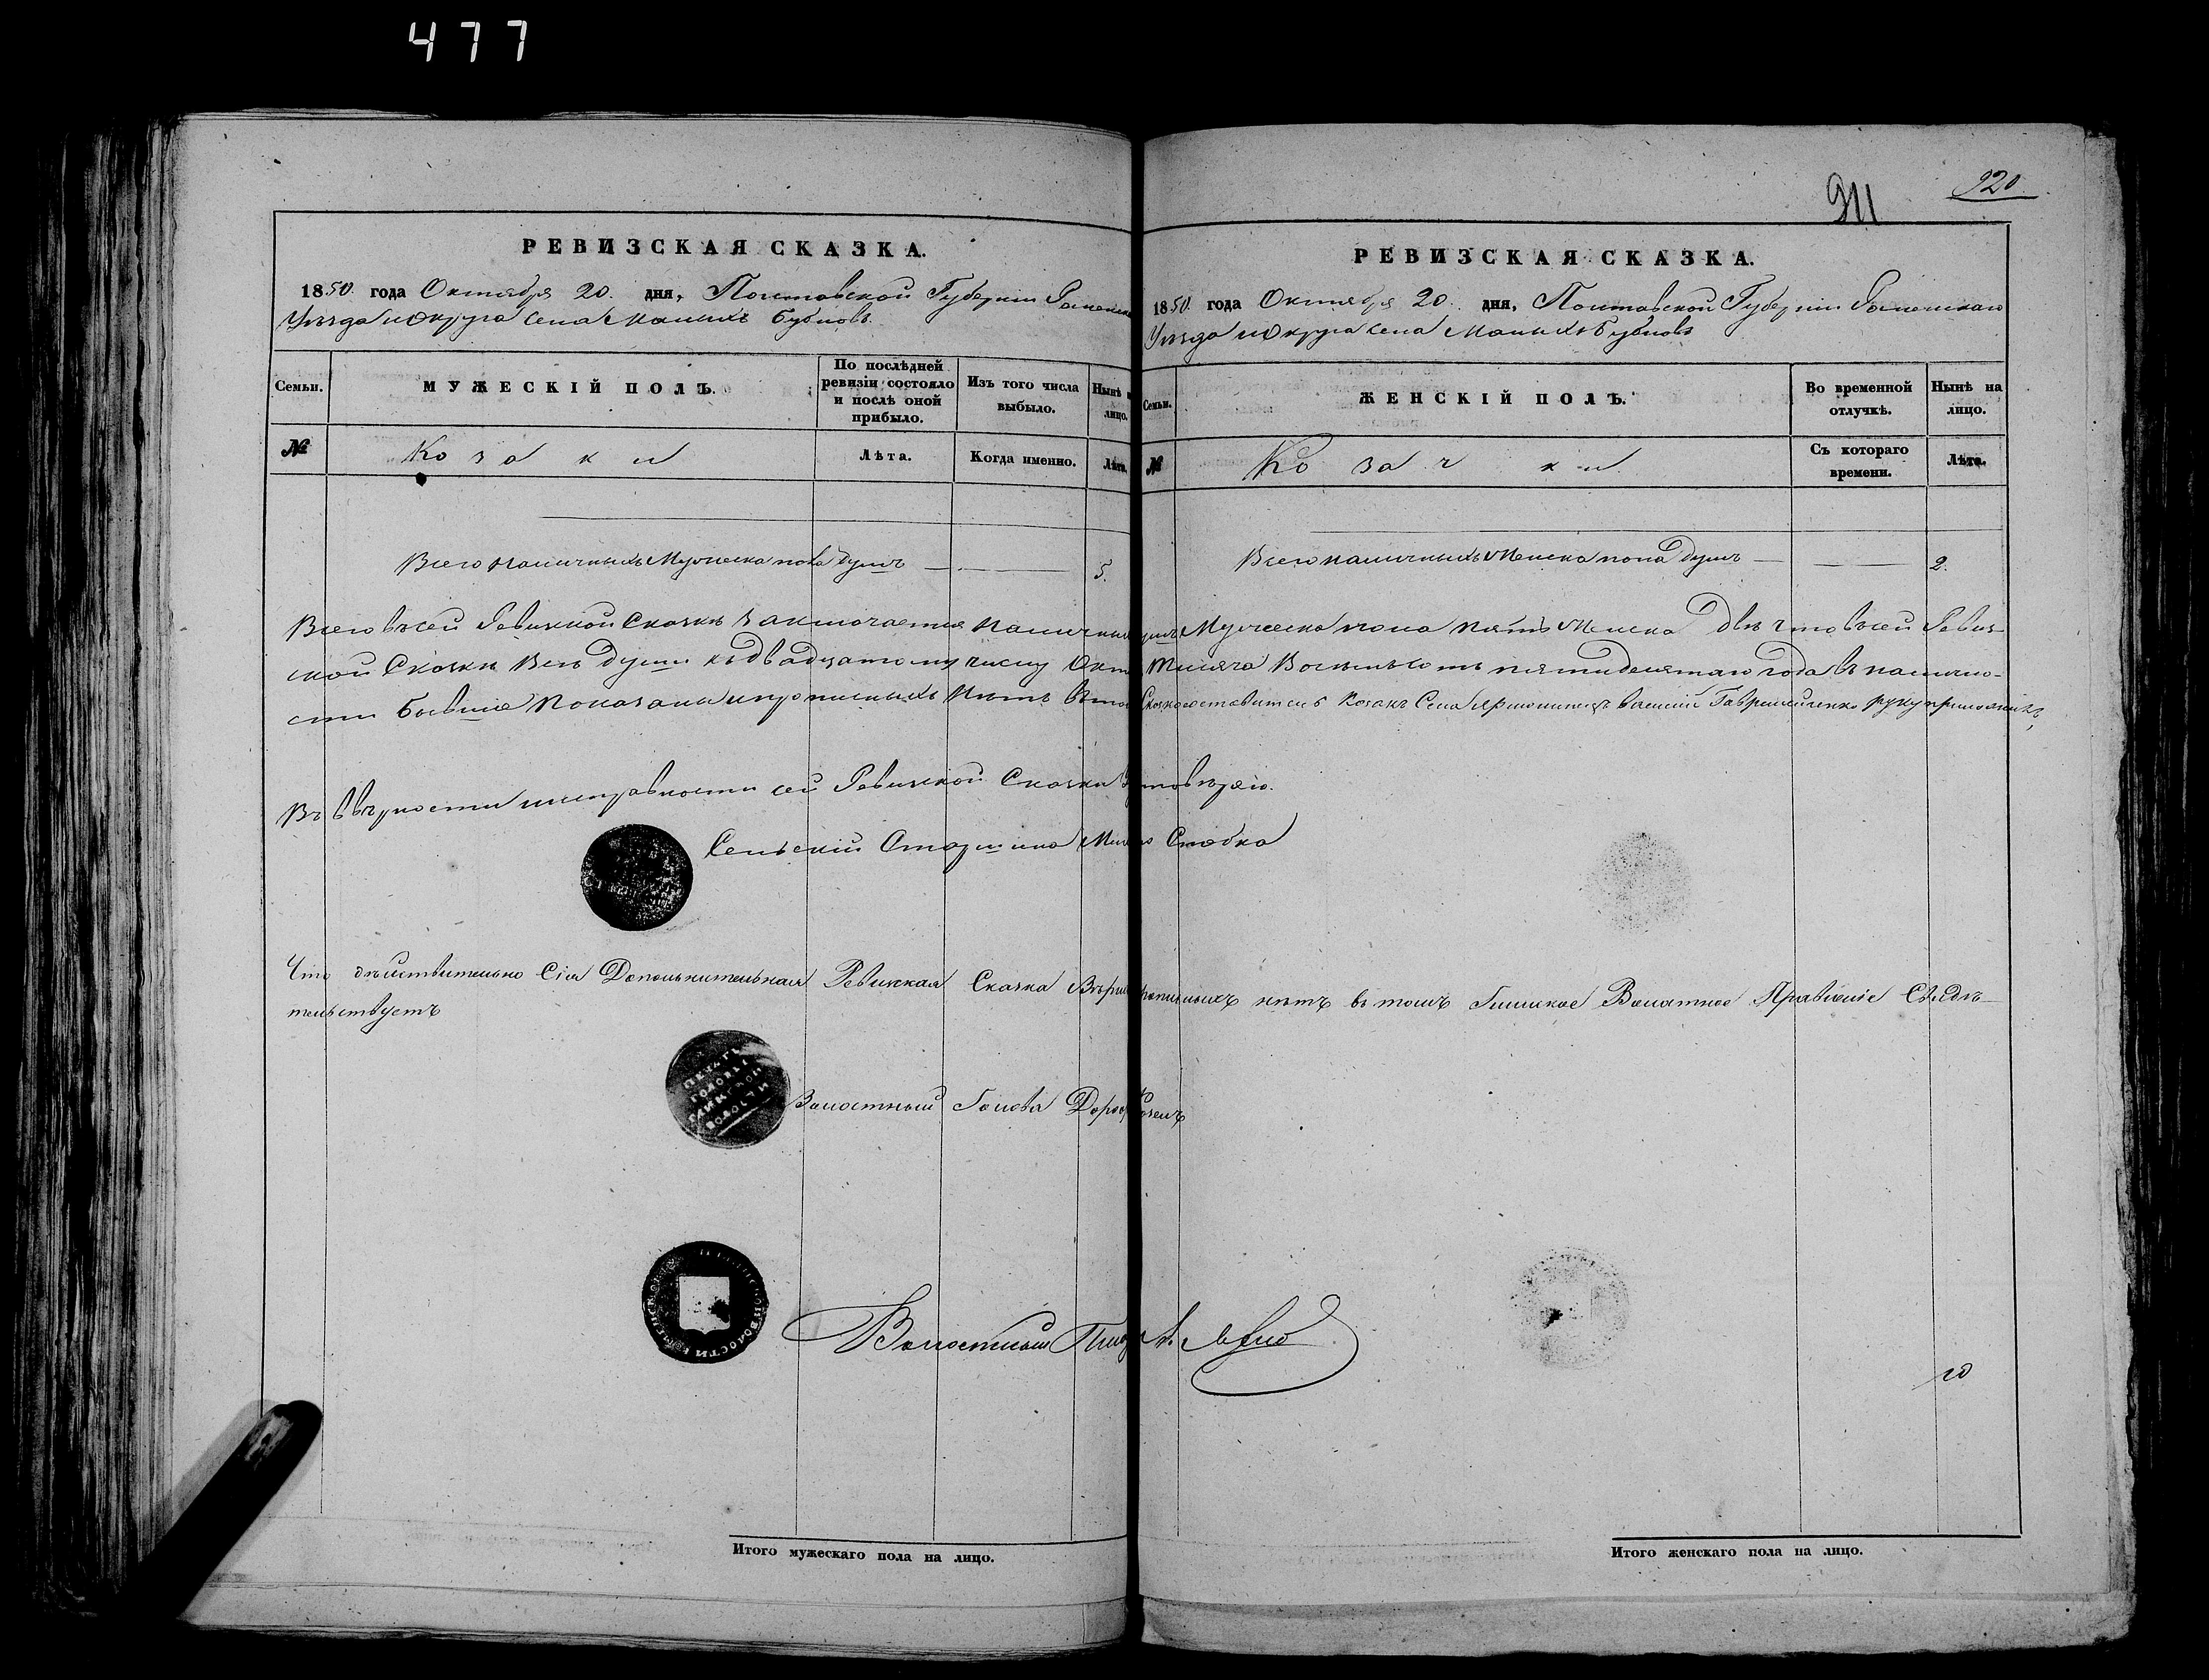 477
911
920
РЕВИЗСКАЯ СКАЗКА.
1850 года Октября 20. дня, Полтавской Губерніи Роменска
Уѣзда и Округа села Малыхъ Бубновъ.
Семьи.
МУЖЕСКІЙ ПОЛЪ.
По послѣдней ревизіи состояло и послѣ оной прибыло.
Изъ того числа выбыло.
Нынѣ н
лицо.
№
Козаки
Лѣта.
Когда именно.
Лѣта.
Всего наличныхъ Мужеска пола душъ 5.
РЕВИЗСКАЯ СКАЗКА.
1850 года Октября 20. дня, Полтавской Губерніи Роменскаго
Уѣзда и Округа села Малыхъ Бубновъ
Семьи.
ЖЕНСКІЙ ПОЛЪ.
Во временной отлучкѣ.
Нынѣ на лицо.
№
Козачки
Съ котораго времени.
Лѣта.
Всего наличныхъ Женска пола душъ 2.
Всего въ сей Ревизкой Сказкѣ заключается наличныхъ душъ Мужеска пола пять Женска двѣ что въ сей Ревиз-
кой Сказкѣ всѣ души къ двадцатому числу Окт Тысяча Восемьсотъ пятидесятаго года въ налично-
сти бывшіе показаны и прописныхъ нѣтъ въ том Сказкосоставитель Козакъ Села Василій Гавриличенко руку приложилъ
Въ вѣрности и исправности сей Ревизкой Сказки Удтовѣряю.
Сельскій Старшина Стобка
Что дѣйствительно Сія Дополнительная Ревизкая Сказка Вѣрна прописныхъ нѣтъ въ томъ Глинское Волостное Правленіе Свидѣ-
тельствуетъ
ПЕЧАТЬ
ГОЛОВЫ
ГЛИНСКОЙ
ВОЛОСТИ
Волостный Голова
Волостный Писарь
Итого мужескаго пола на лицо.
Итого женскаго пола на лицо.